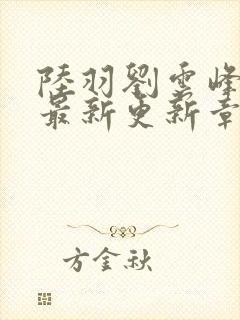 陸羽劉雲峰
最新更新章
方金秋